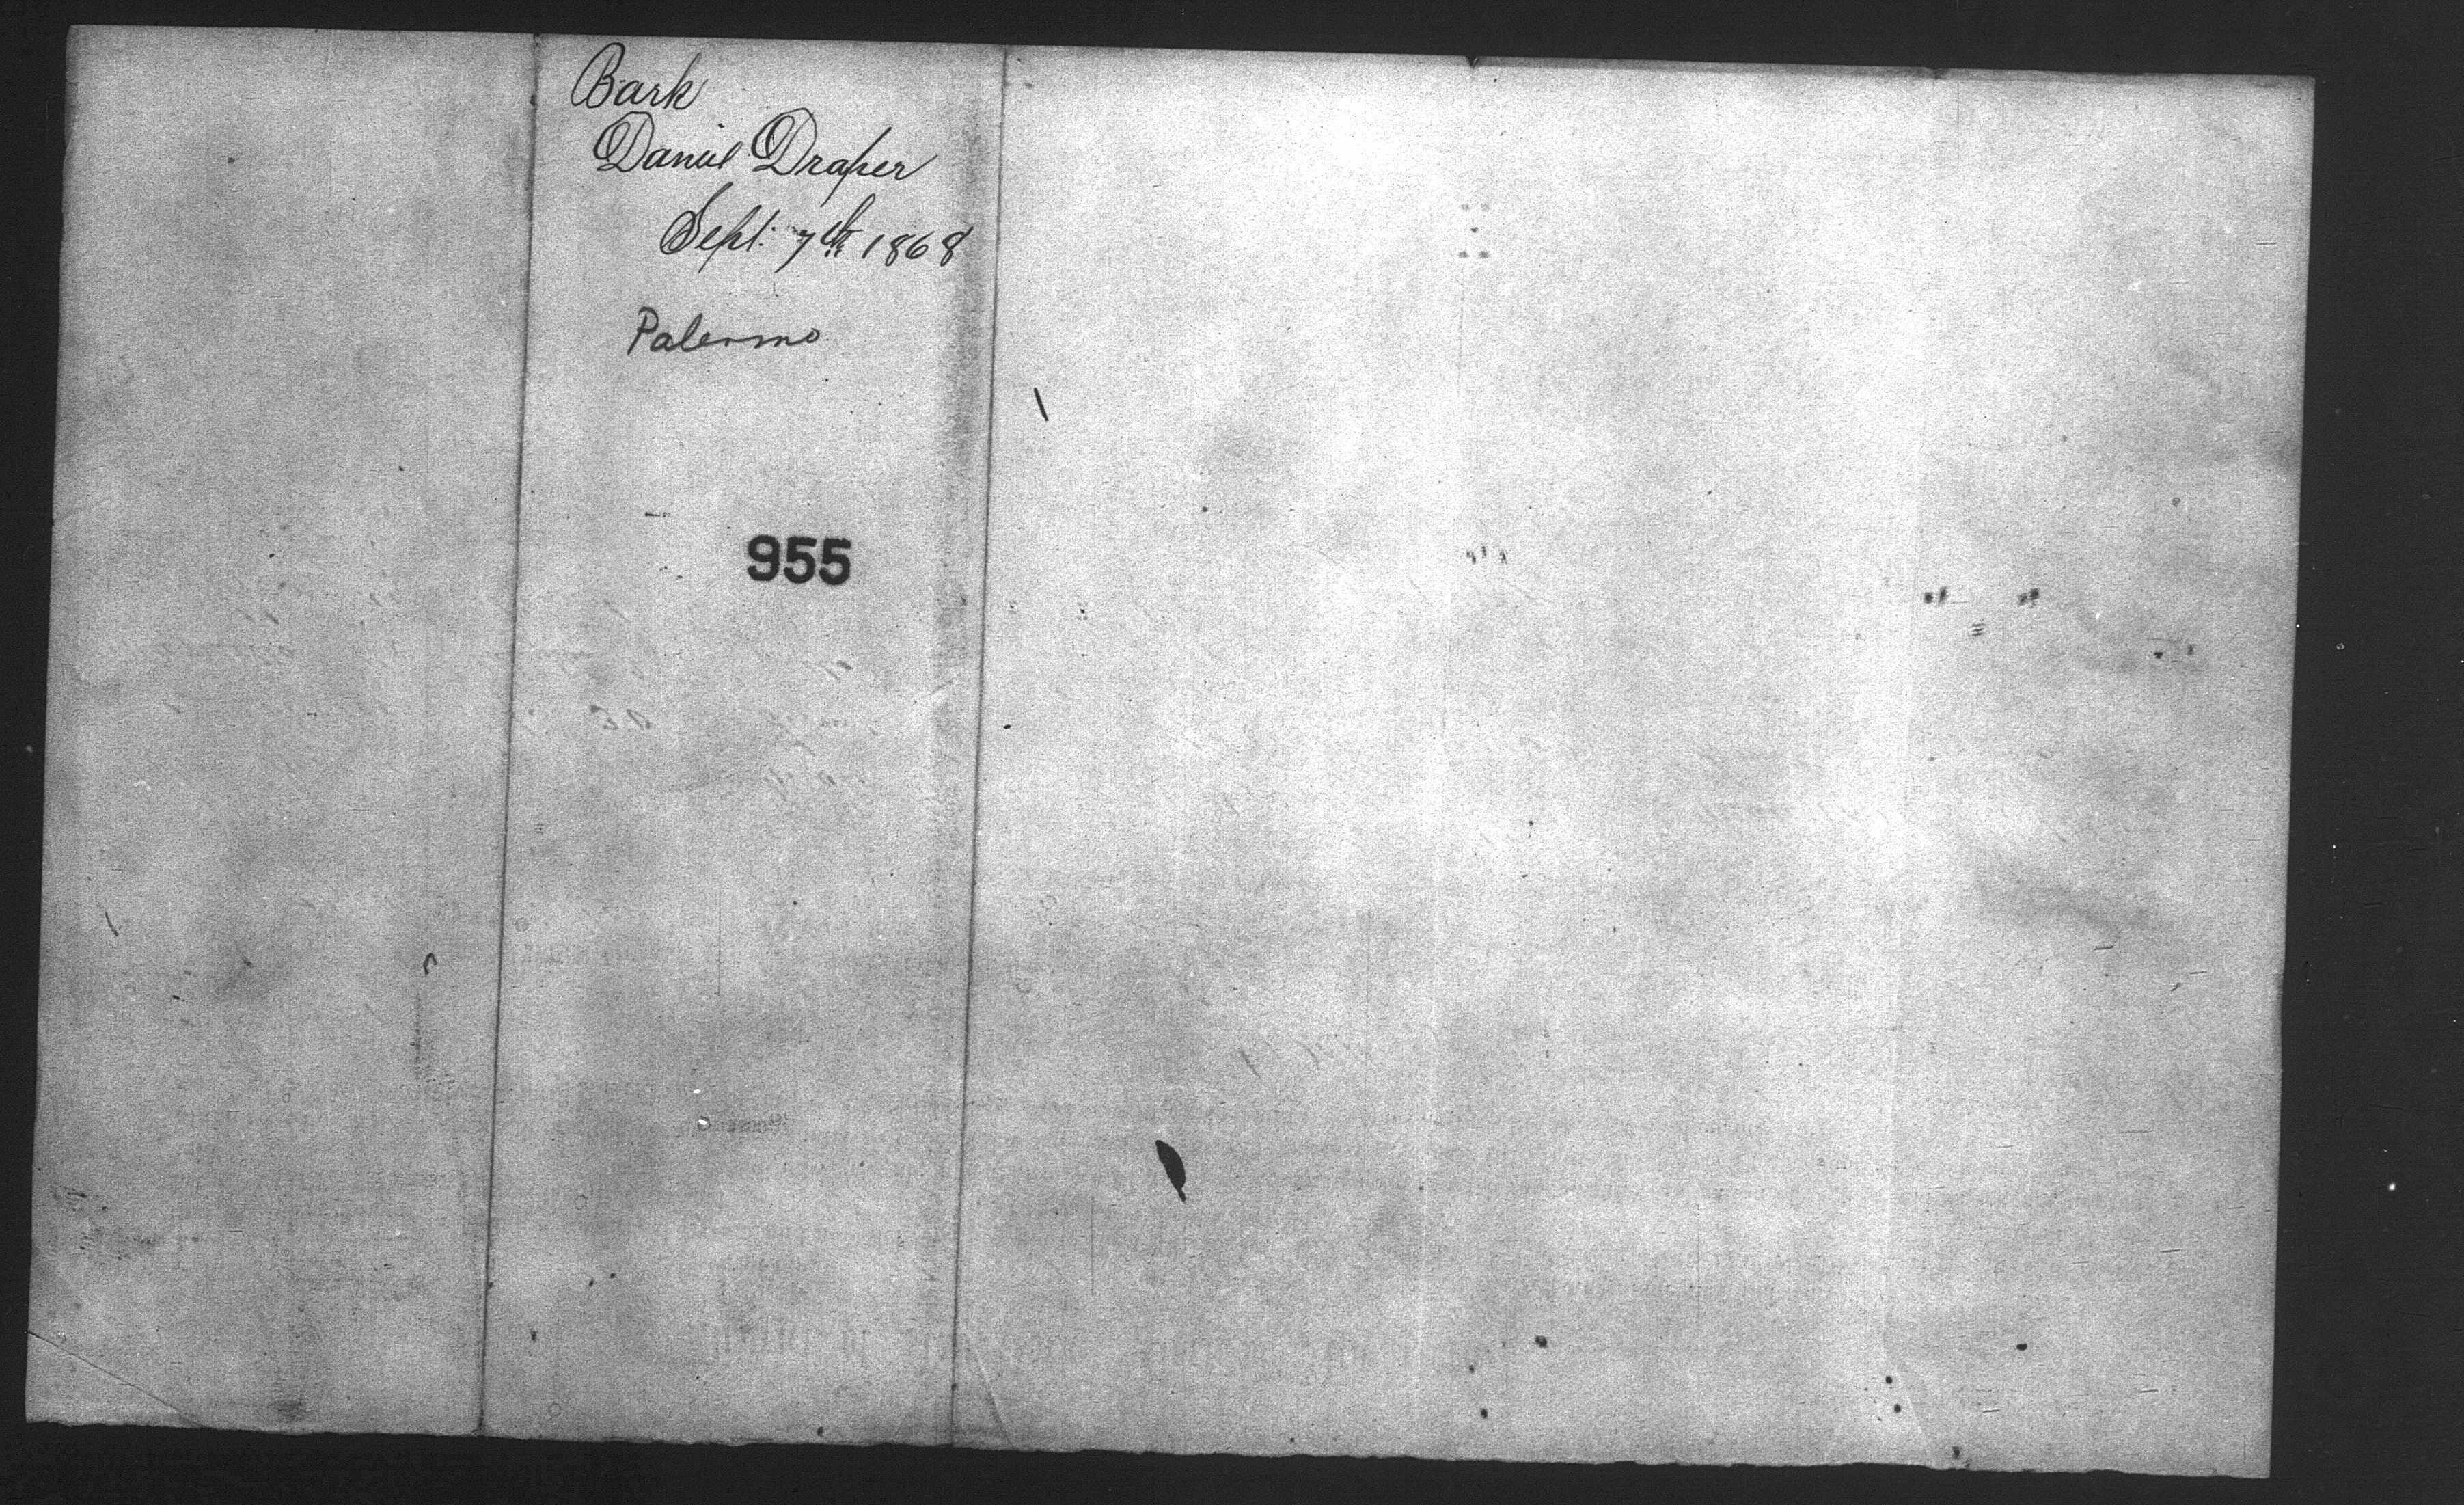 Bark
Daniel Draper
Sept. 7th 1868
Palermo
955